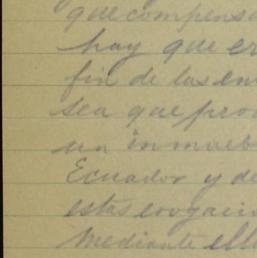 que compens
hay que er
fin de las en
sea que pro
un inmueb
Ecuador y de
estas erogaci
mediante ell